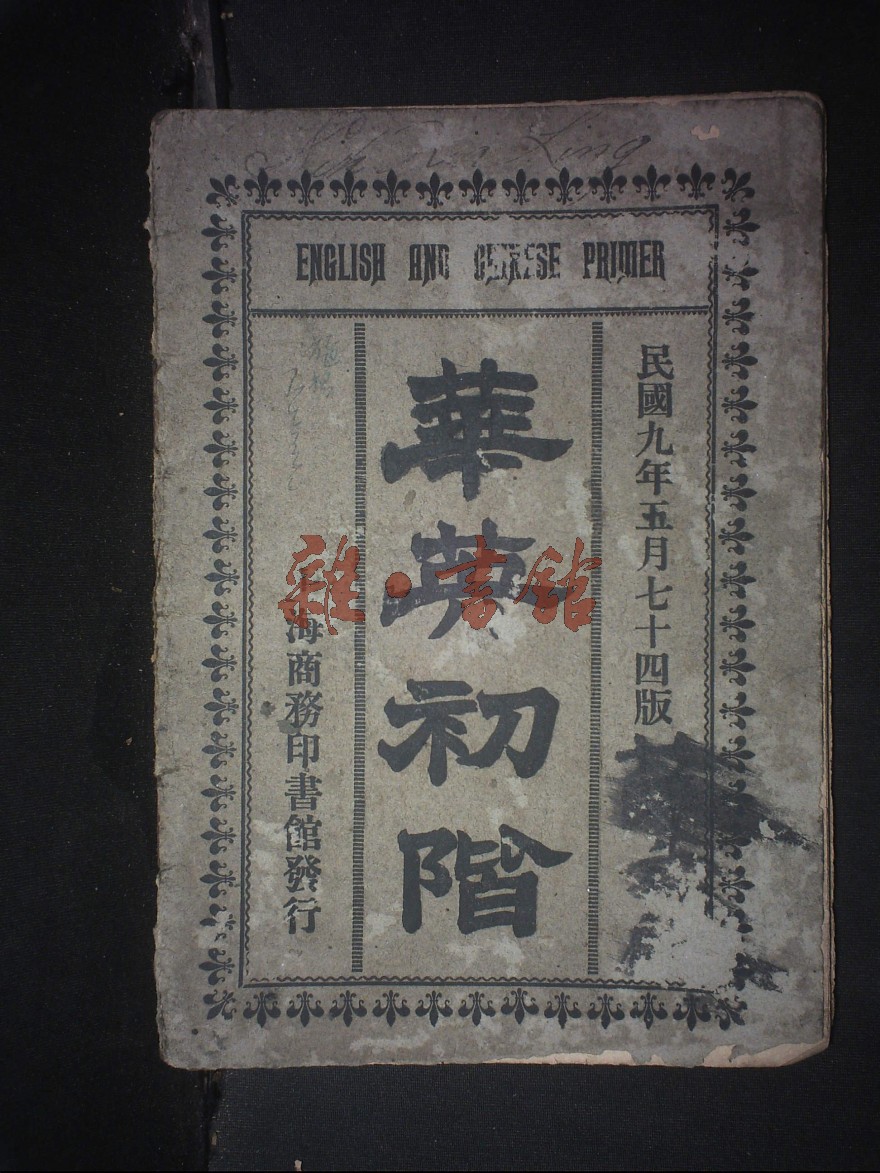 ENGLISH AND CHINESE PRIMER
民國九年五月七十四版
華英初階
海商務印書館發行
雜·書館